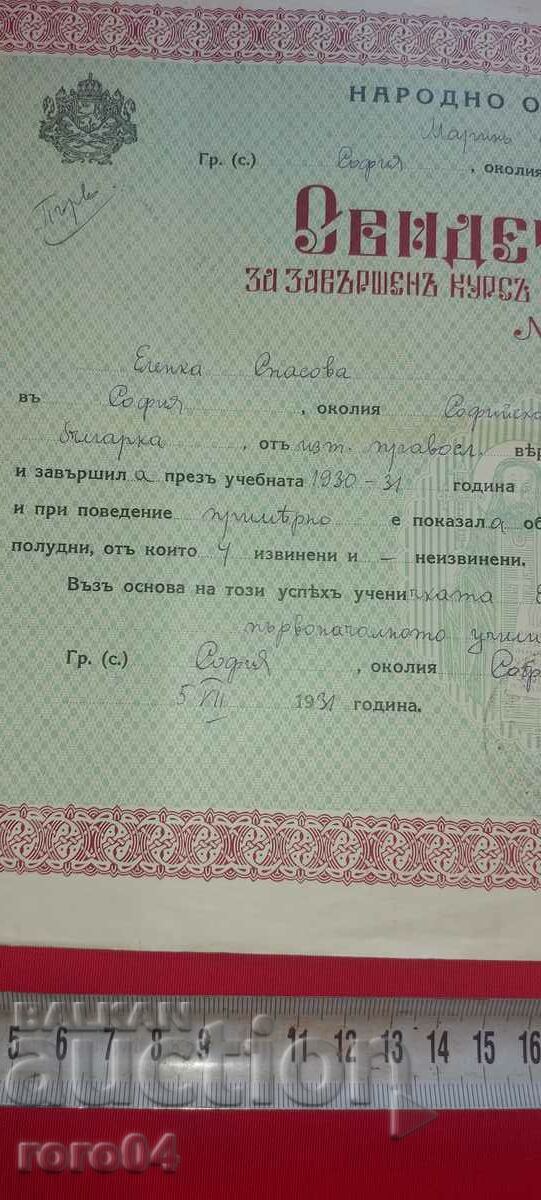 НАРОДНО О
Маринъ
Гр. (с.) София , околия
Първо
Свиде
ЗА ЗАВЪРШЕНЪ КУРСЪ
№
Еленка Спасова
въ София , околия Софийска
българка , отъ изт. правосл. вѣр
и завършила презъ учебната 1930-31 година
и при поведение примѣрно е показала об
полудни, отъ които 4 извинени и — неизвинени.
Възъ основа на този успѣхъ ученичката Е
първоначалното учили
Гр. (с.) София , околия
5 VII 1931 година.
5 6 7 8 9 11 12 13 14 15 16
BALKAN
auction
roro04